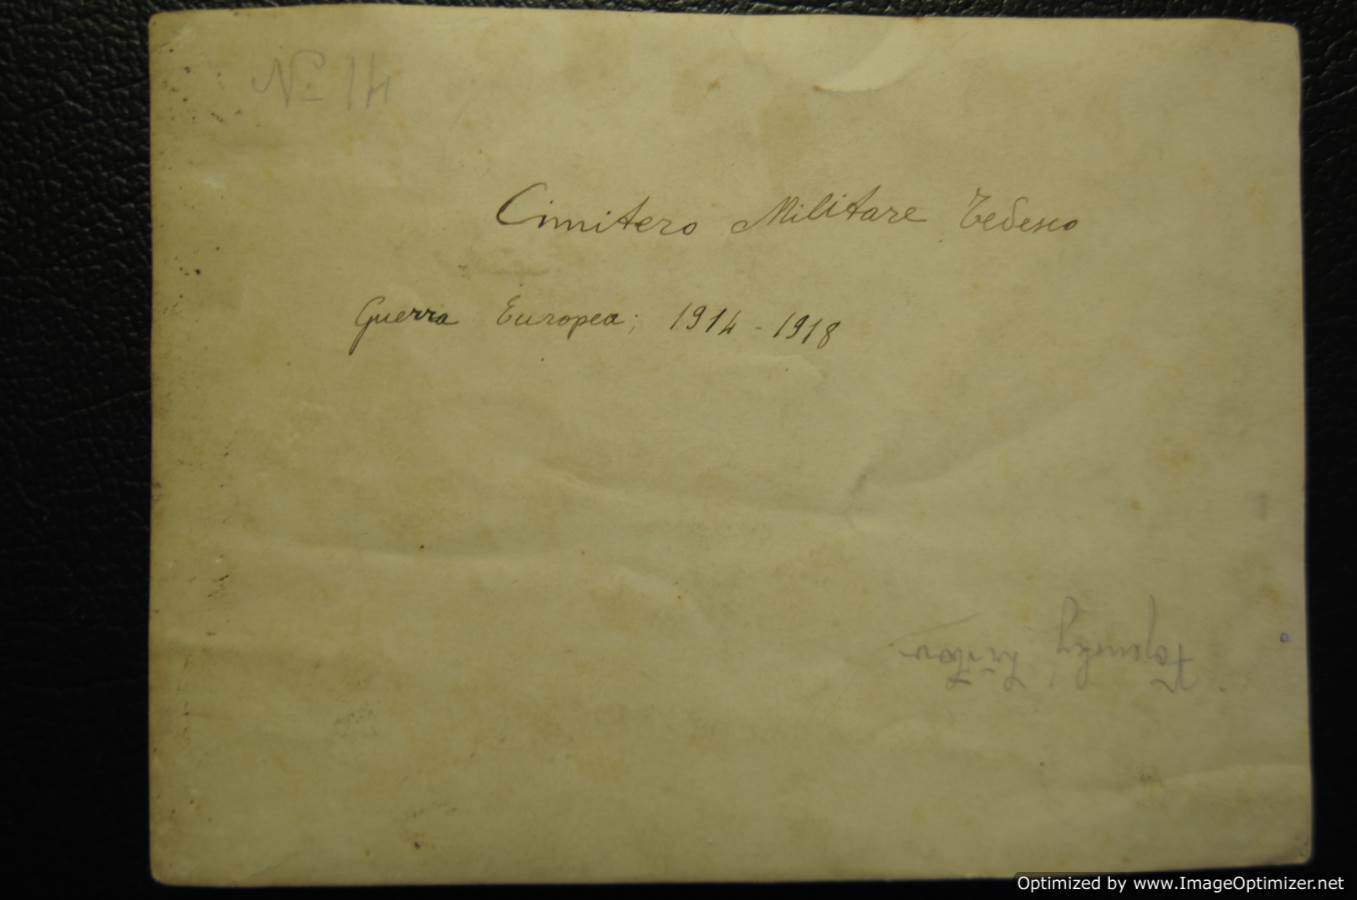 Nº 14
Cimitero Militare Tedesco
Guerra Europea; 1914-1918
Optimized by www.ImageOptimizer.net